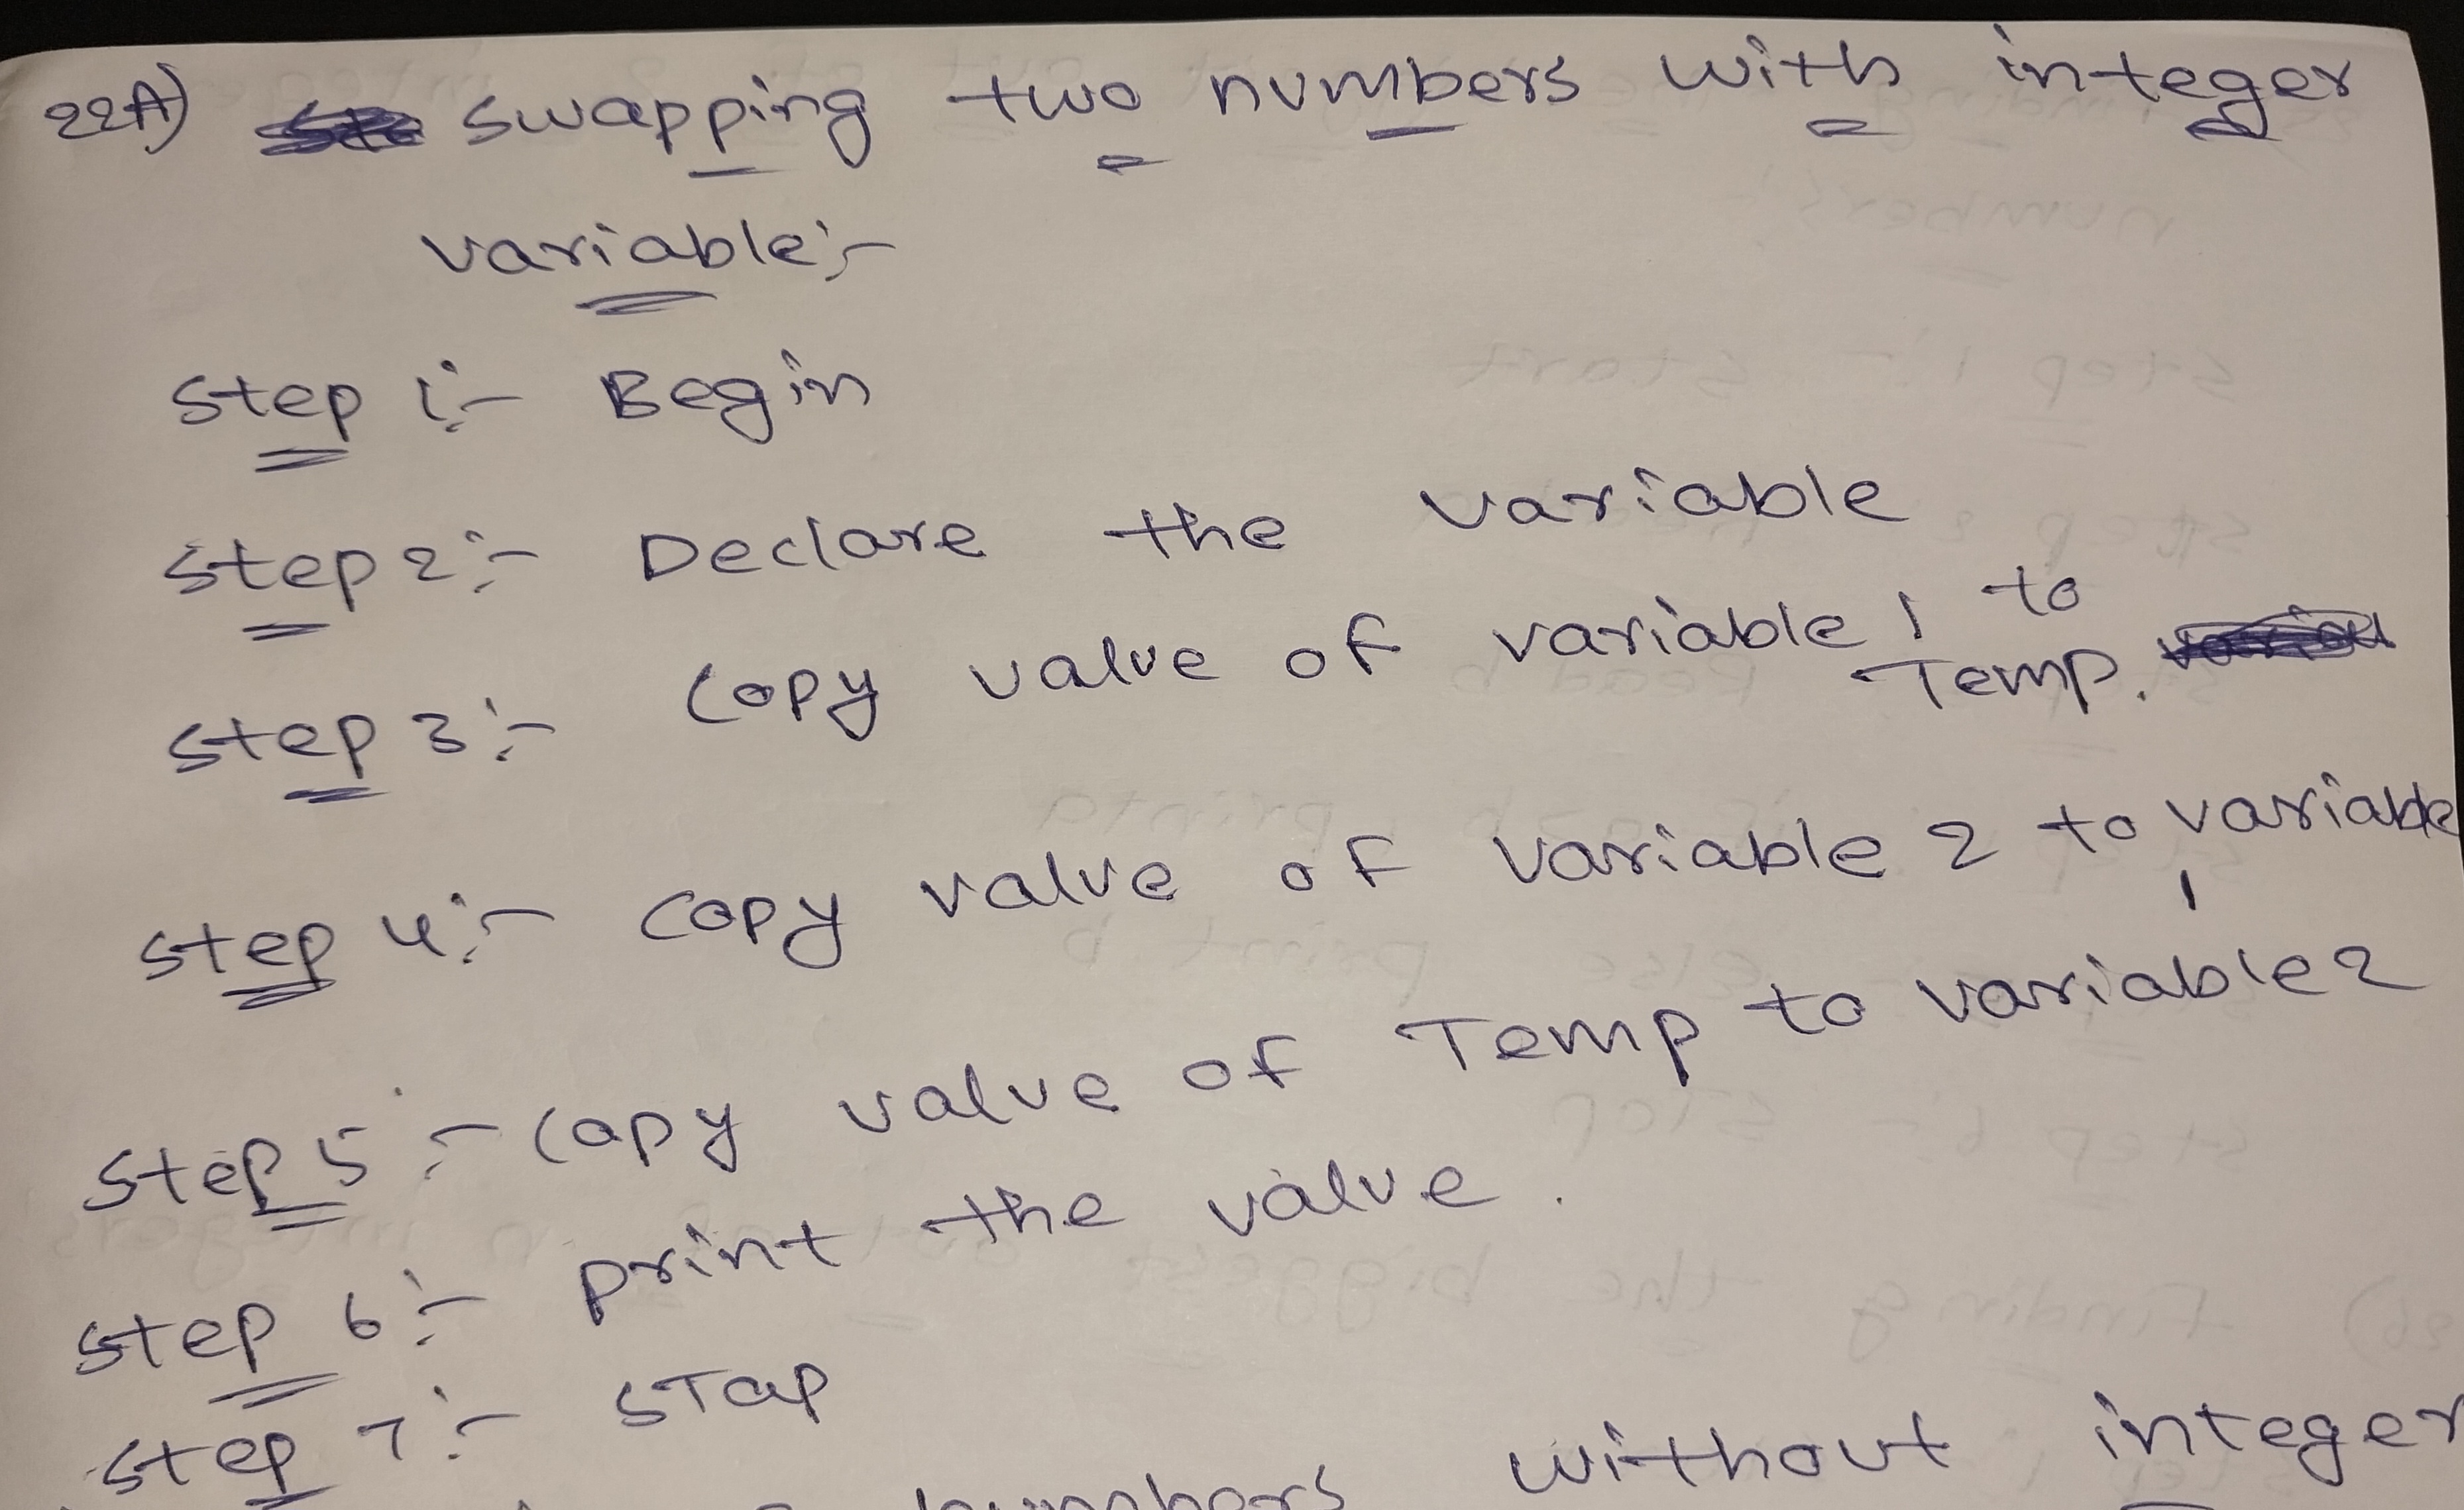 22A) swapping two numbers with integer
variable:-
step 1:- Begin
step 2:- Declare the variable
step 3:- copy value of variable 1 to
Temp.
step 4:- copy value of variable 2 to variable
1
step 5:- copy value of Temp to variable 2
step 6:- print the value.
step 7:- STOP
numbers without integer